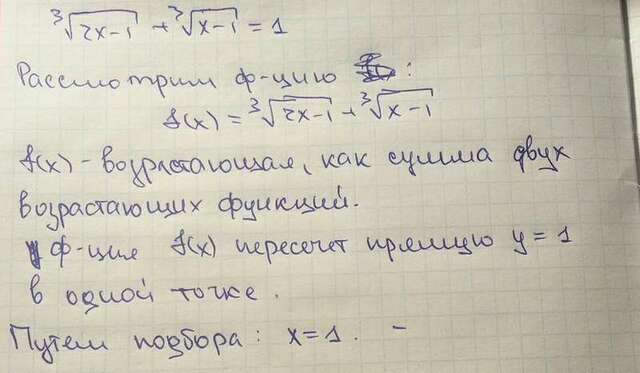 ∛(2x-1) + ∛(x-1) = 1
Рассмотрим ф-цию :
f(x) = ∛(2x-1) + ∛(x-1)
f(x) - возрастающая, как сумма двух
возрастающих функций.
ф-ция f(x) пересечет прямую y = 1
в одной точке.
Путем подбора: x=1. -